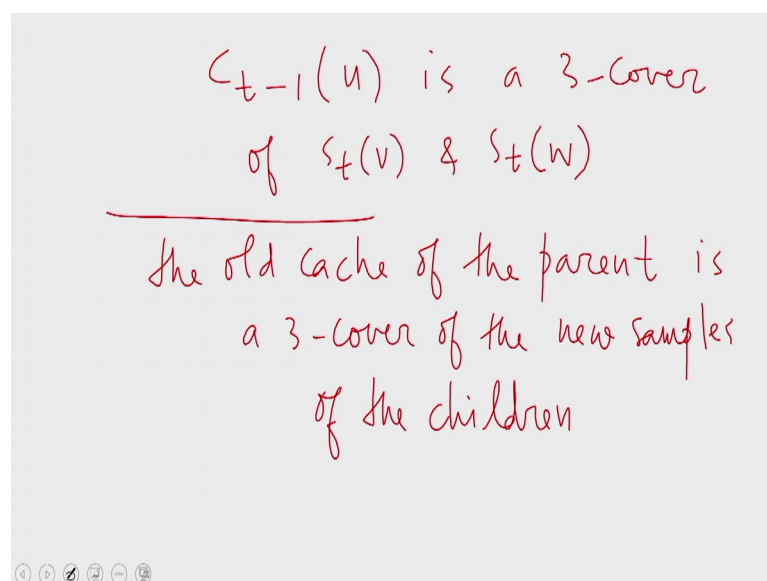 C_{t-1}(u) is a 3-cover
of S_t(v) & S_t(w)
the old cache of the parent is
a 3-cover of the new samples
of the children